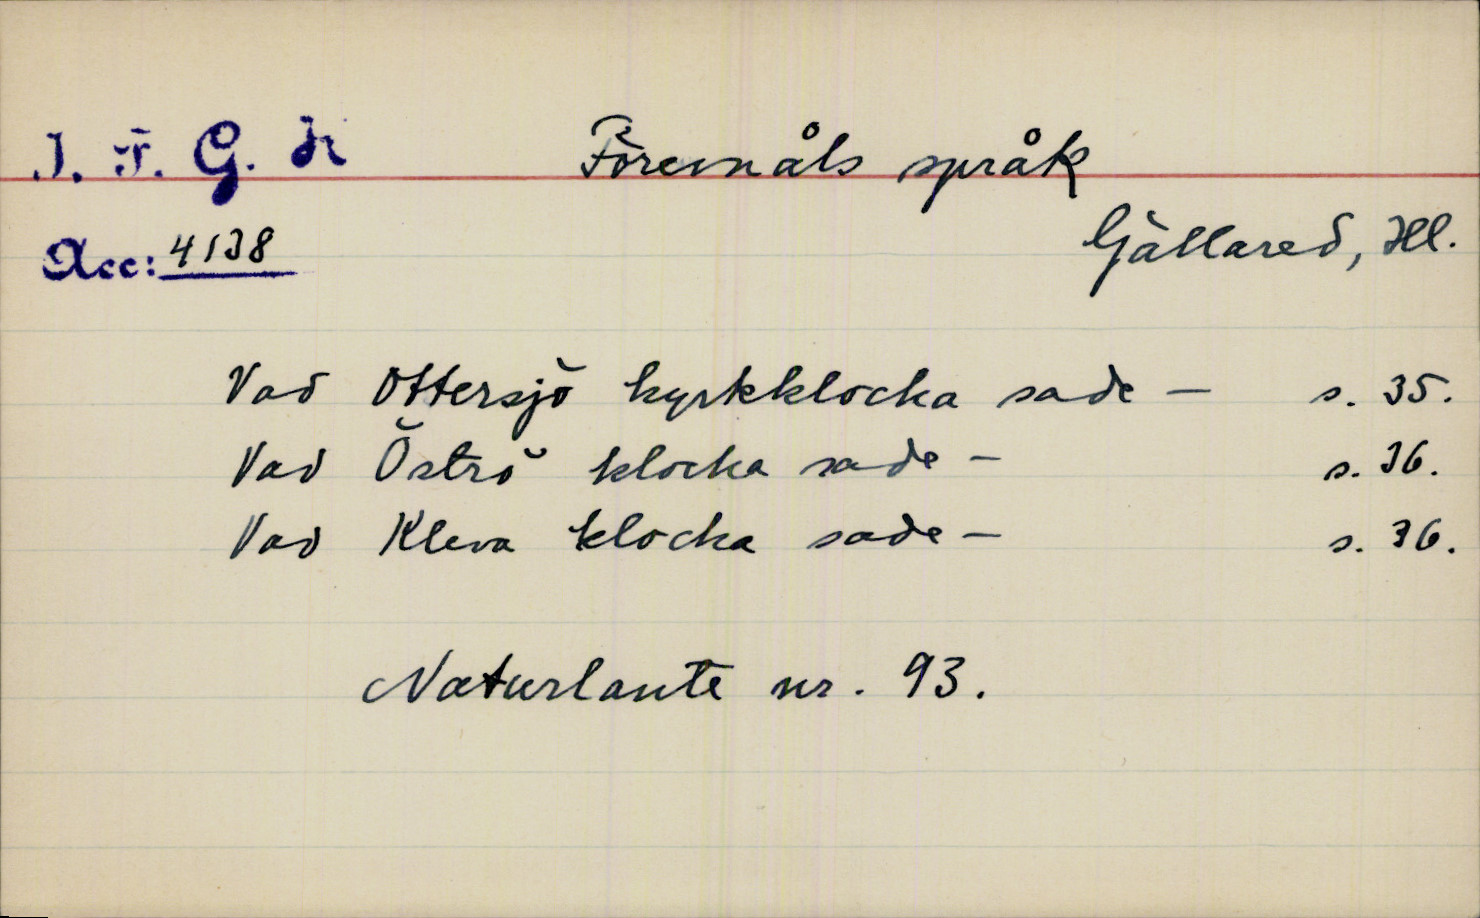 I. F. G. H
Föremåls språk
Gällared, Hl.
Acc: 4138
Vad Ottersjö kyrkklocka sade – s. 35.
Vad Öströ klocka sade – s. 36.
Vad Kleva klocka sade – s. 36.
Naturlaute nr. 93.